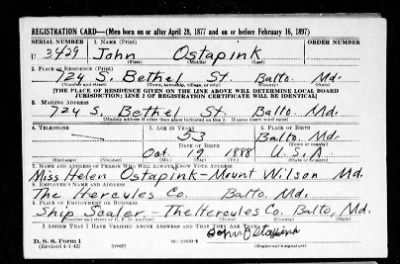 REGISTRATION CARD—(Men born on or after April 28, 1877 and on or before February 16, 1897)
SERIAL NUMBER 1. NAME (Print) ORDER NUMBER
U 3429 John Ostapink
(First) (Middle) (Last)
2. PLACE OF RESIDENCE (Print)
724 S. Bethel St. Balto. Md.
(Number and street) (Town, township, village, or city) (County) (State)
[THE PLACE OF RESIDENCE GIVEN ON THE LINE ABOVE WILL DETERMINE LOCAL BOARD
JURISDICTION; LINE 2 OF REGISTRATION CERTIFICATE WILL BE IDENTICAL]
3. MAILING ADDRESS
724 S. Bethel St. Balto. Md.
[Mailing address if other than place indicated on line 2. If same insert word same]
4. TELEPHONE 5. AGE IN YEARS 6. PLACE OF BIRTH
53 Balto. Md.
DATE OF BIRTH (Town or county)
Oct. 19 1888 U.S.A
(Exchange) (Number) (Mo.) (Day) (Yr.) (State or country)
7. NAME AND ADDRESS OF PERSON WHO WILL ALWAYS KNOW YOUR ADDRESS
Miss Helen Ostapink - Mount Wilson Md.
8. EMPLOYER'S NAME AND ADDRESS
The Hercules Co. Balto. Md.
9. PLACE OF EMPLOYMENT OR BUSINESS
Ship Scaler. - The Hercules Co. Balto, Md.
(Number and street or R. F. D. number) (Town) (County) (State)
I AFFIRM THAT I HAVE VERIFIED ABOVE ANSWERS AND THAT THEY ARE TRUE.
John Ostapink
D. S. S. Form 1
(Revised 4-1-42) (Registrant's signature)